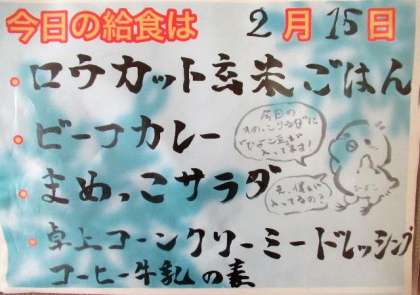 今日の給食は 2月15日
・ロウカット玄米ごはん
・ビーフカレー
・まめっこサラダ
・卓上コーンクリーミードレッシング
コーヒー牛乳の素
今日の
"まめっこサラダ"に
"ひよこ豆"が
入ってます!
え、僕が
入ってるの?